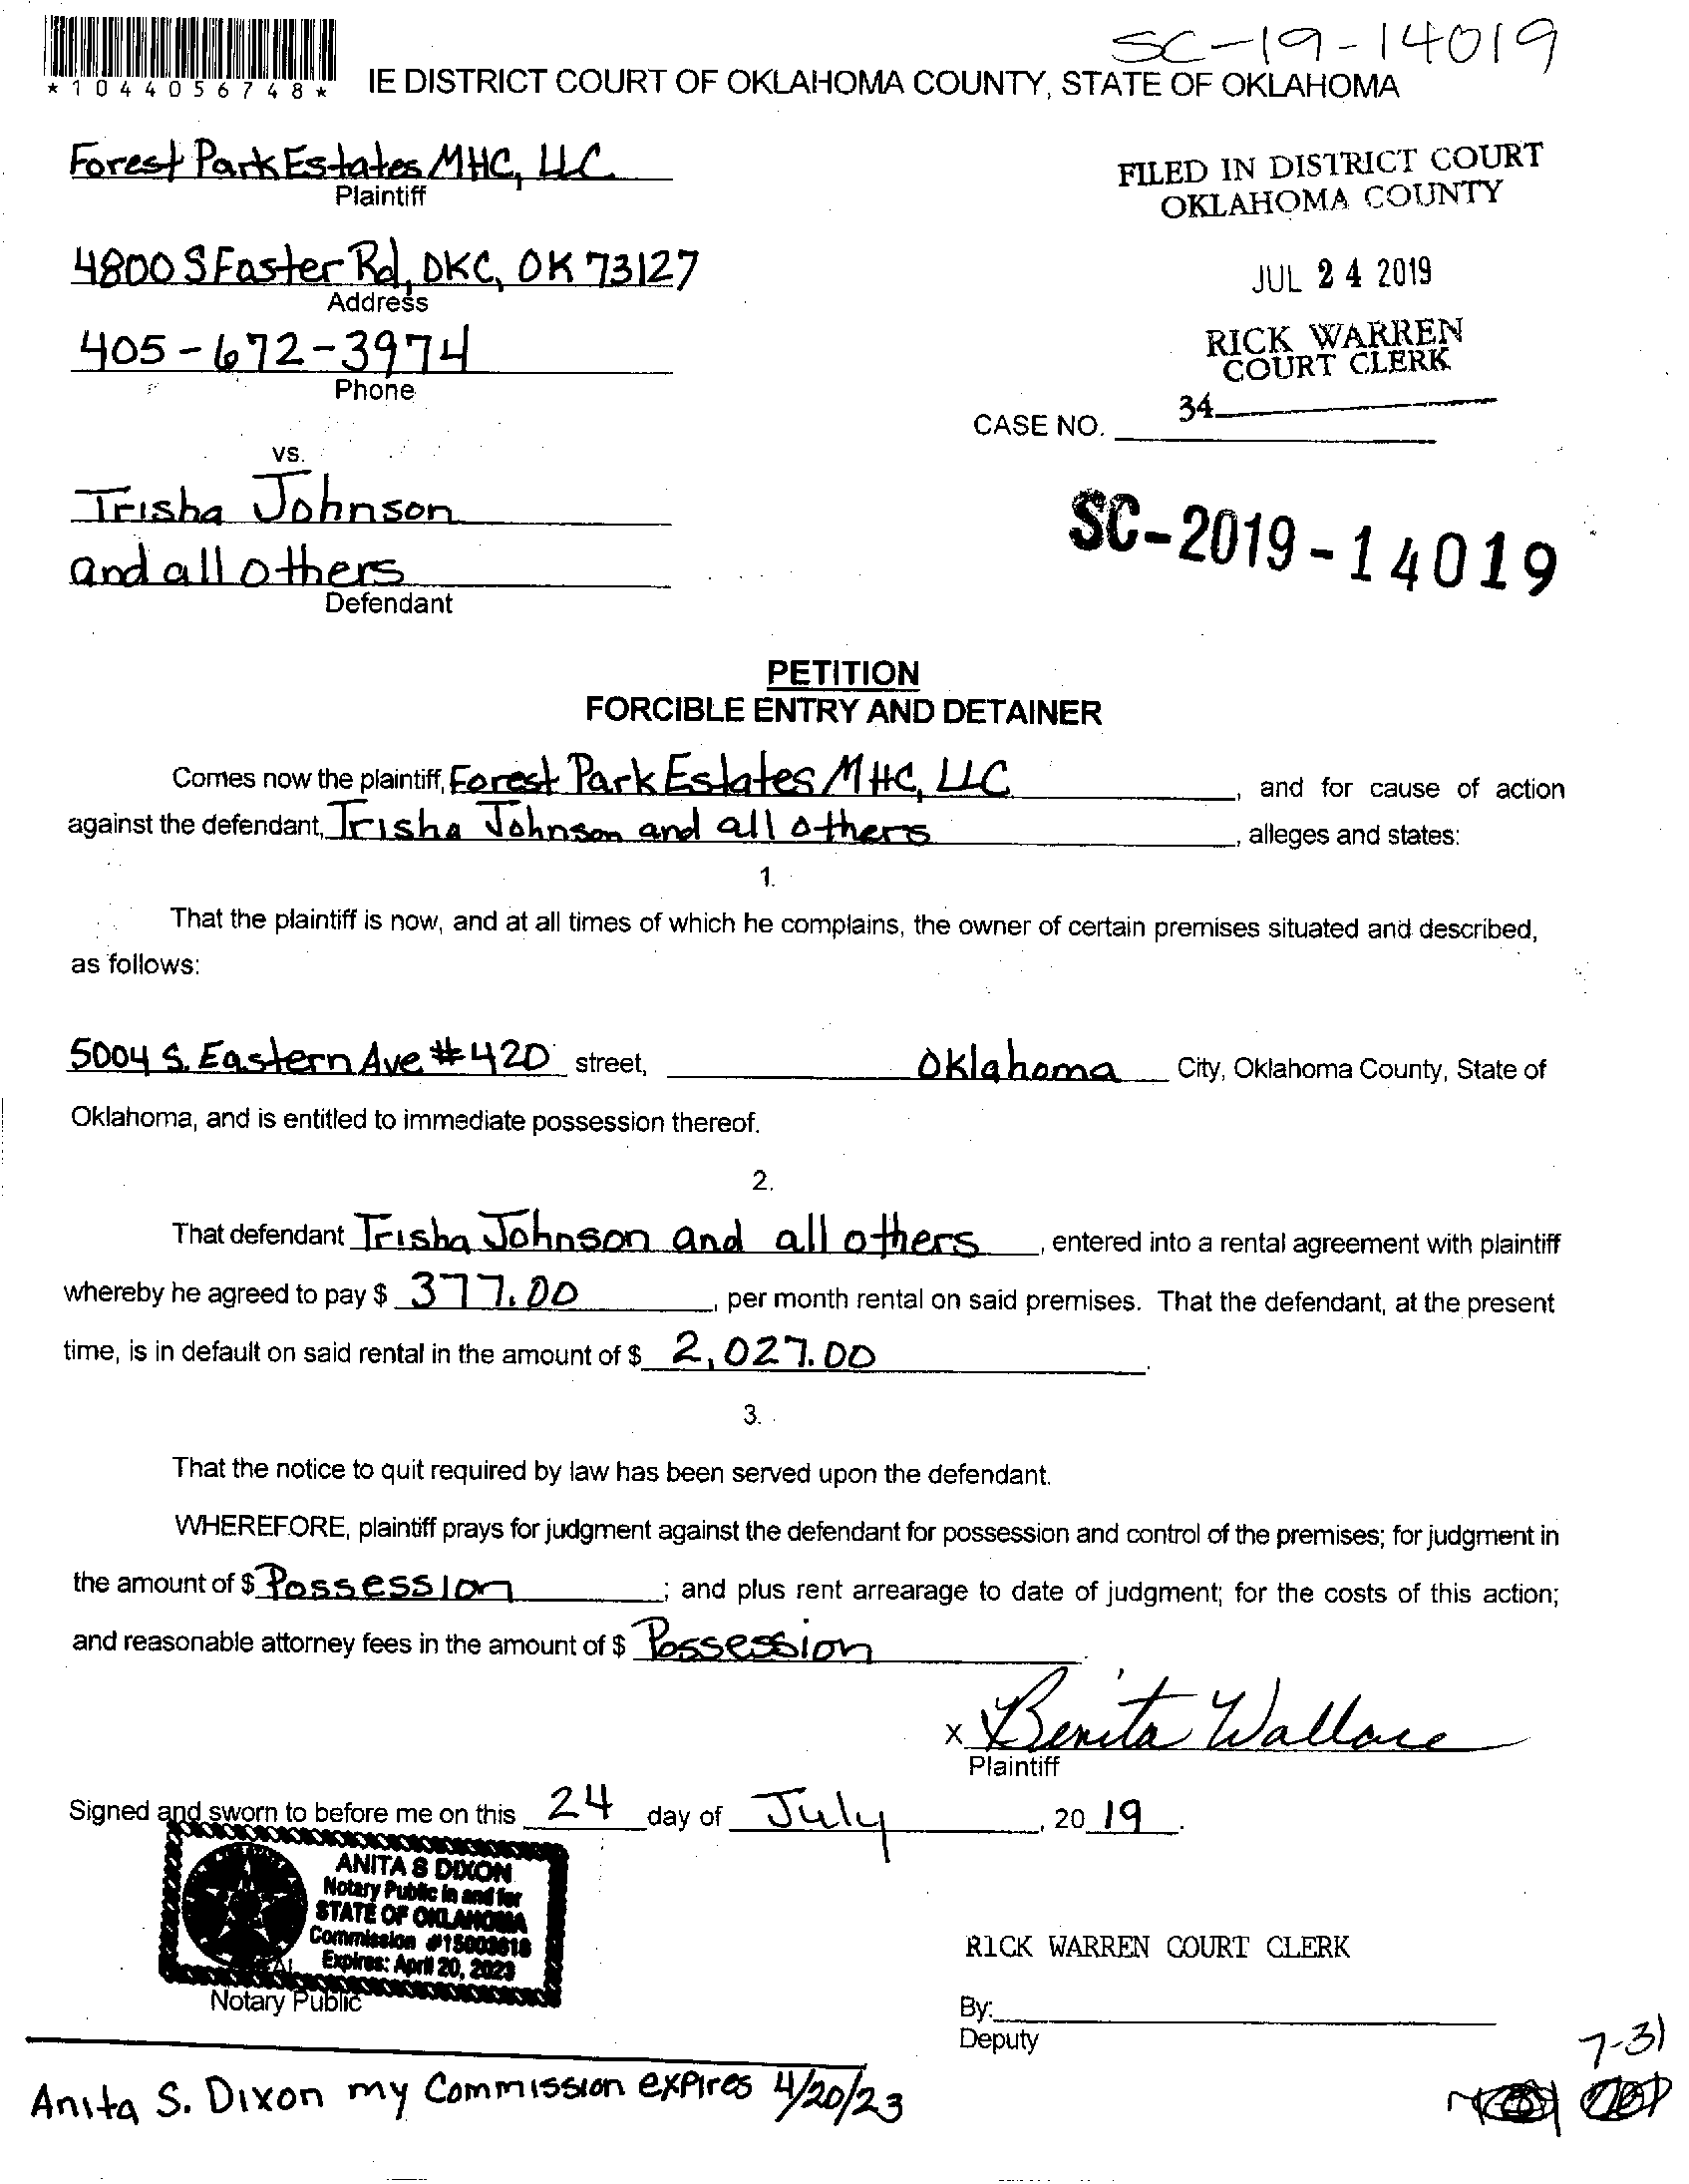 SC-19-14019
*1044056748*
IE DISTRICT COURT OF OKLAHOMA COUNTY, STATE OF OKLAHOMA
Forest Park Estates MHC, LLC
Plaintiff
FILED IN DISTRICT COURT
OKLAHOMA COUNTY
4800 S Foster Rd, OKC, OK 73127
Address
JUL 24 2019
405-672-3974
Phone
RICK WARREN
COURT CLERK
34
CASE NO.
vs.
Trisha Johnson
and all others
Defendant
SC-2019-14019
PETITION
FORCIBLE ENTRY AND DETAINER
Comes now the plaintiff, Forest Park Estates MHC, LLC, and for cause of action
against the defendant, Trisha Johnson and all others, alleges and states:
1.
That the plaintiff is now, and at all times of which he complains, the owner of certain premises situated and described,
as follows:
5004 S. Eastern Ave #420 street, Oklahoma City, Oklahoma County, State of
Oklahoma, and is entitled to immediate possession thereof.
2.
That defendant Trisha Johnson and all others, entered into a rental agreement with plaintiff
whereby he agreed to pay $ 377.00, per month rental on said premises. That the defendant, at the present
time, is in default on said rental in the amount of $ 2,027.00.
3.
That the notice to quit required by law has been served upon the defendant.
WHEREFORE, plaintiff prays for judgment against the defendant for possession and control of the premises; for judgment in
the amount of $ Possession; and plus rent arrearage to date of judgment; for the costs of this action;
and reasonable attorney fees in the amount of $ Possession.
x Benita Wallace
Plaintiff
Signed and sworn to before me on this 24 day of July, 20 19.
ANITA S DIXON
Notary Public in and for
STATE OF OKLAHOMA
Commission #15003618
Expires: April 20, 2023
Notary Public
RICK WARREN COURT CLERK
By:
Deputy
7-31
Anita S. Dixon my Commission expires 4/20/23